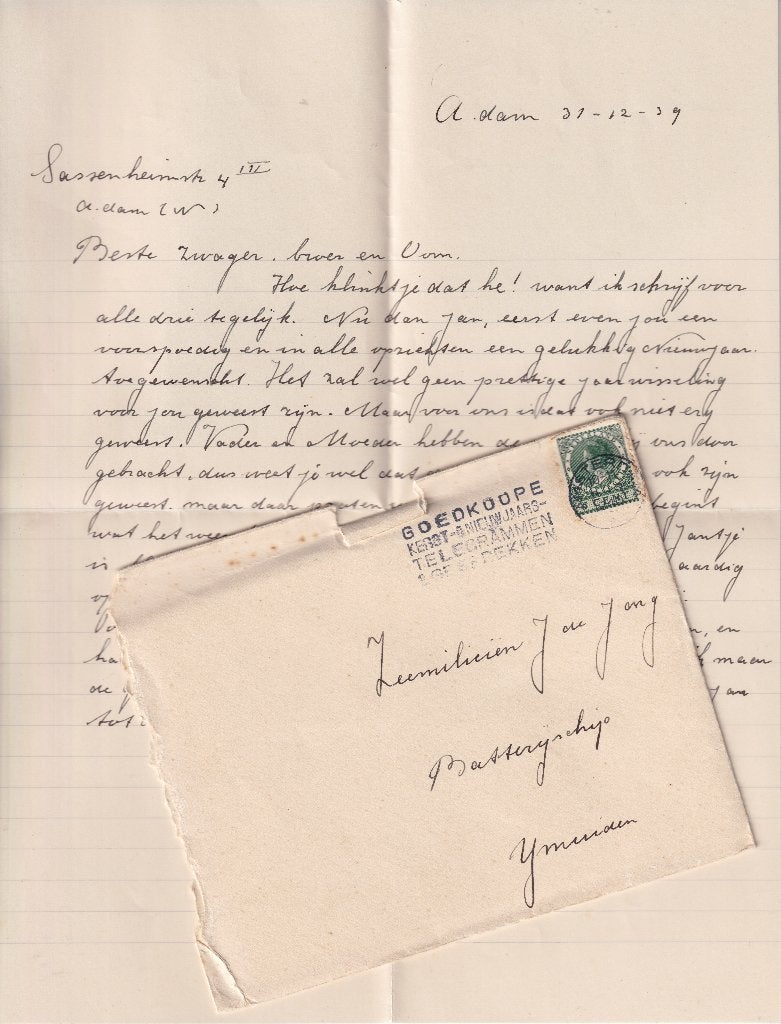 A.dam 31-12-39
Sassenheimstr 4 III
A.dam (W)
Beste zwager, broer en Oom.
Hoe klinkt je dat he! want ik schrijf voor
alle drie tegelijk. Nu dan Jan, eerst even jou een
voorspoedig en in alle opzichten een gelukkig Nieuwjaar
toegewenscht. Het zal wel geen prettige jaarwisseling
voor jou geweest zijn. Maar voor ons is dat ook niet erg
geweest. Vader en Moeder hebben de ons door
gebracht, dus weet je wel dat ook zijn
geweest. maar daar praten begint
wat het Jantje
is aardig
en
maar
de
tot
GOEDKOOPE
KERST- & NIEUWJAARS-
TELEGRAMMEN
& GESPREKKEN
Zeemilicien J de Jong
Batterijschip
Ymuiden